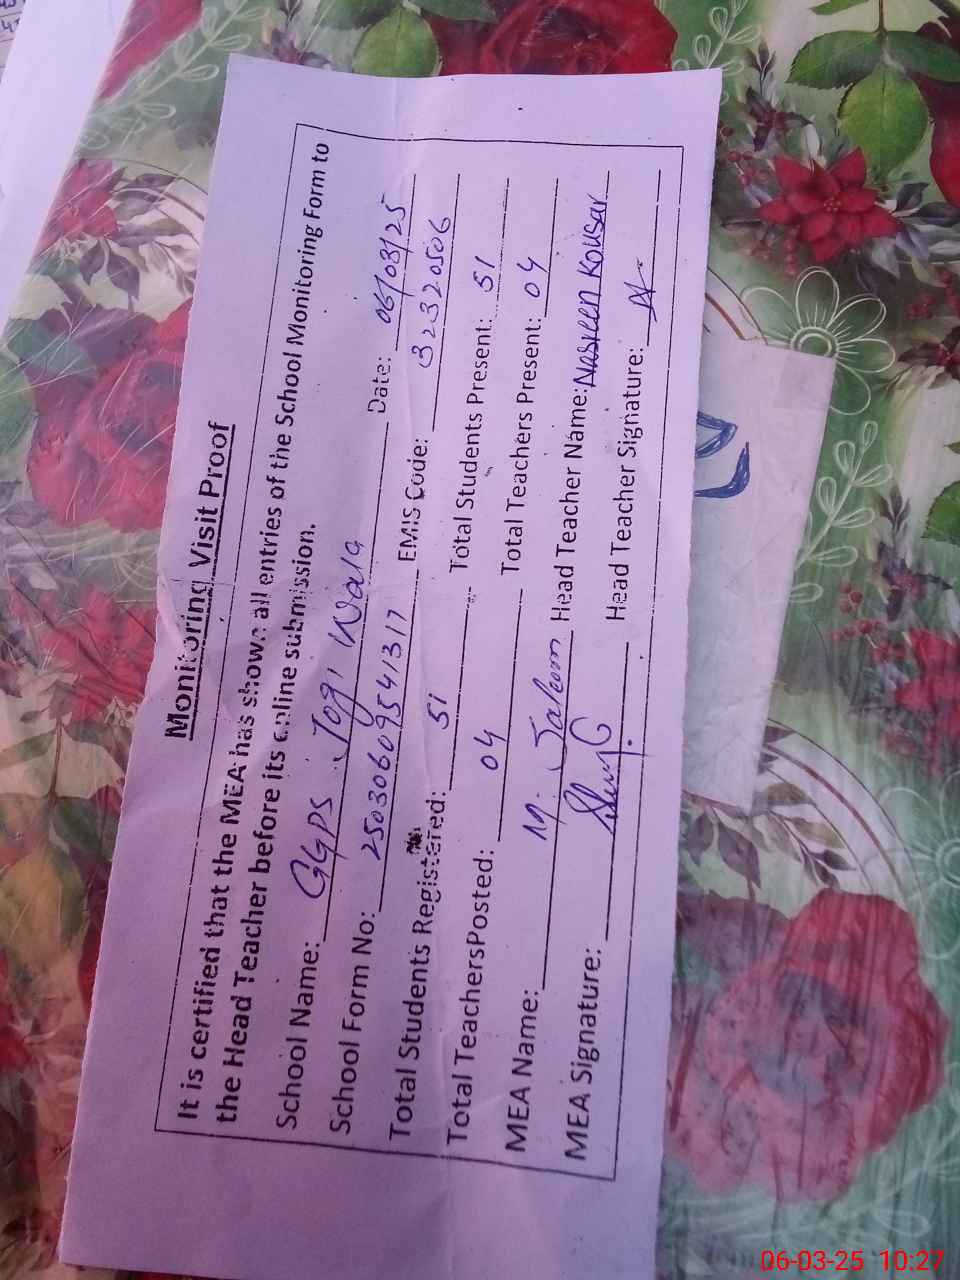 Monitoring Visit Proof
It is certified that the MEA has shown all entries of the School Monitoring Form to
the Head Teacher before its online submission.
School Name: GGPS Jogi Wala Date: 06/03/25
School Form No: 25030609541317 EMIS Code: 32320506
Total Students Registered: 51 Total Students Present: 51
Total TeachersPosted: 04 Total Teachers Present: 04
MEA Name: M. Saleem Head Teacher Name: Nasreen Kousar
MEA Signature: Head Teacher Signature:
06-03-25 10:27